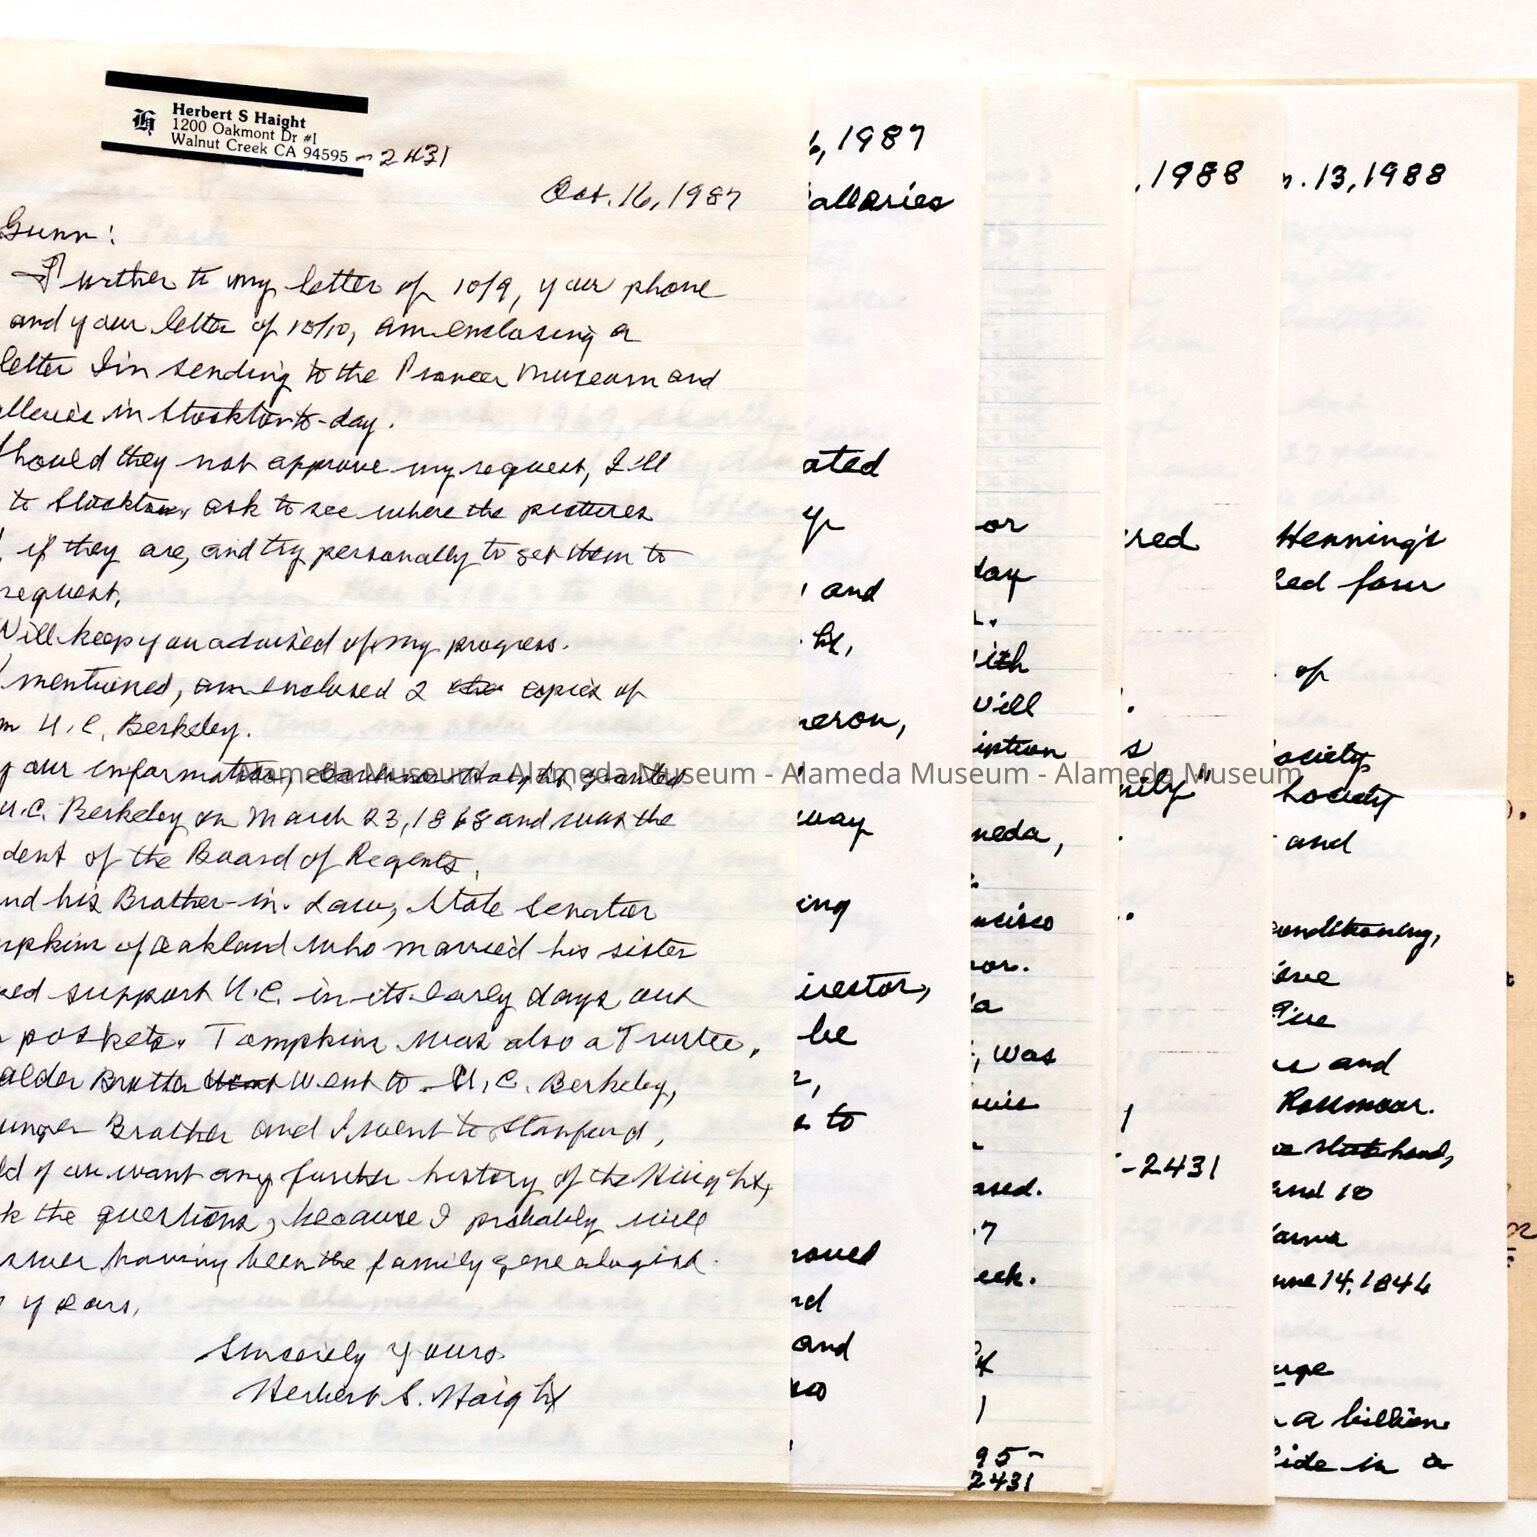 Herbert S Haight
1200 Oakmont Dr #1
Walnut Creek CA 94595 - 2431
Oct. 16, 1987
Gunn:
Further to my letter of 10/9, your phone
and your letter of 10/10, am enclosing a
letter I'm sending to the Pioneer Museum and
alleries in Stockton to-day.
hould they not approve my request, I'll
to Stockton, ask to see where the pictures
if they are, and try personally to get them to
request.
Will keep you advised of my progress.
mentioned, am enclosed 2 copies of
m U.C. Berkeley.
your information, Governor Haight granted
U.C. Berkeley on March 23, 1868 and was the
dent of the Board of Regents.
nd his Brother-in-Law, State Senator
mpkins of Oakland who married his sister
ed support U.C. in its early days out
pockets. Tompkins was also a Trustee.
older Brother went to U.C. Berkeley,
unger Brother and I went to Stanford.
ld you want any further history of the Haights,
k the questions, because I probably will
swer having been the family genealogist
years.
Sincerely Yours
Herbert S. Haight
6, 1987
alleries
ated
and
ht,
meron,
way
ing
irector,
be
to
moved
nd
and
or
day
ith
will
iption
meda,
ncisco
nor.
da
, was
ased.
7
eek.
95-
2431
, 1988
red
s
mily"
-2431
n. 13, 1988
Henning's
ed four
of
ociety,
Society
and
onditioning,
ive
Give
and
Rossmoor.
statehood,
and 10
June 14, 1846
urge
a billion
ide in a
Alameda Museum - Alameda Museum - Alameda Museum - Alameda Museum